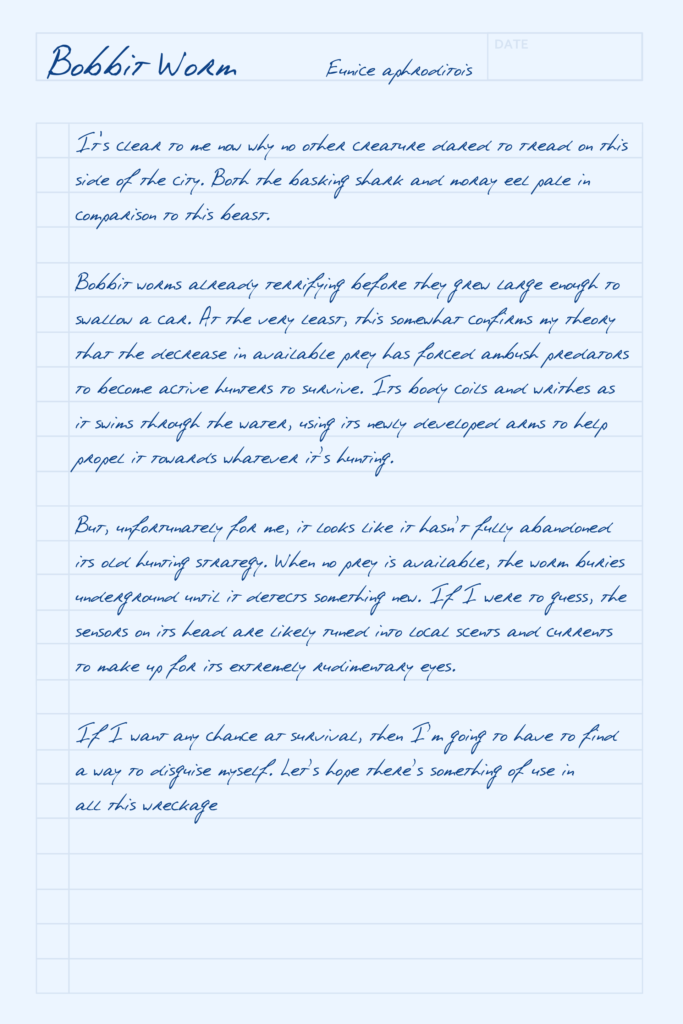 Bobbit Worm
Eunice aphroditois
DATE
It's clear to me now why no other creature dared to tread on this
side of the city. Both the basking shark and moray eel pale in
comparison to this beast.
Bobbit worms already terrifying before they grew large enough to
swallow a car. At the very least, this somewhat confirms my theory
that the decrease in available prey has forced ambush predators
to become active hunters to survive. Its body coils and writhes as
it swims through the water, using its newly developed arms to help
propel it towards whatever it's hunting.
But, unfortunately for me, it looks like it hasn't fully abandoned
its old hunting strategy. When no prey is available, the worm buries
underground until it detects something new. If I were to guess, the
sensors on its head are likely tuned into local scents and currents
to make up for its extremely rudimentary eyes.
If I want any chance at survival, then I'm going to have to find
a way to disguise myself. Let's hope there's something of use in
all this wreckage